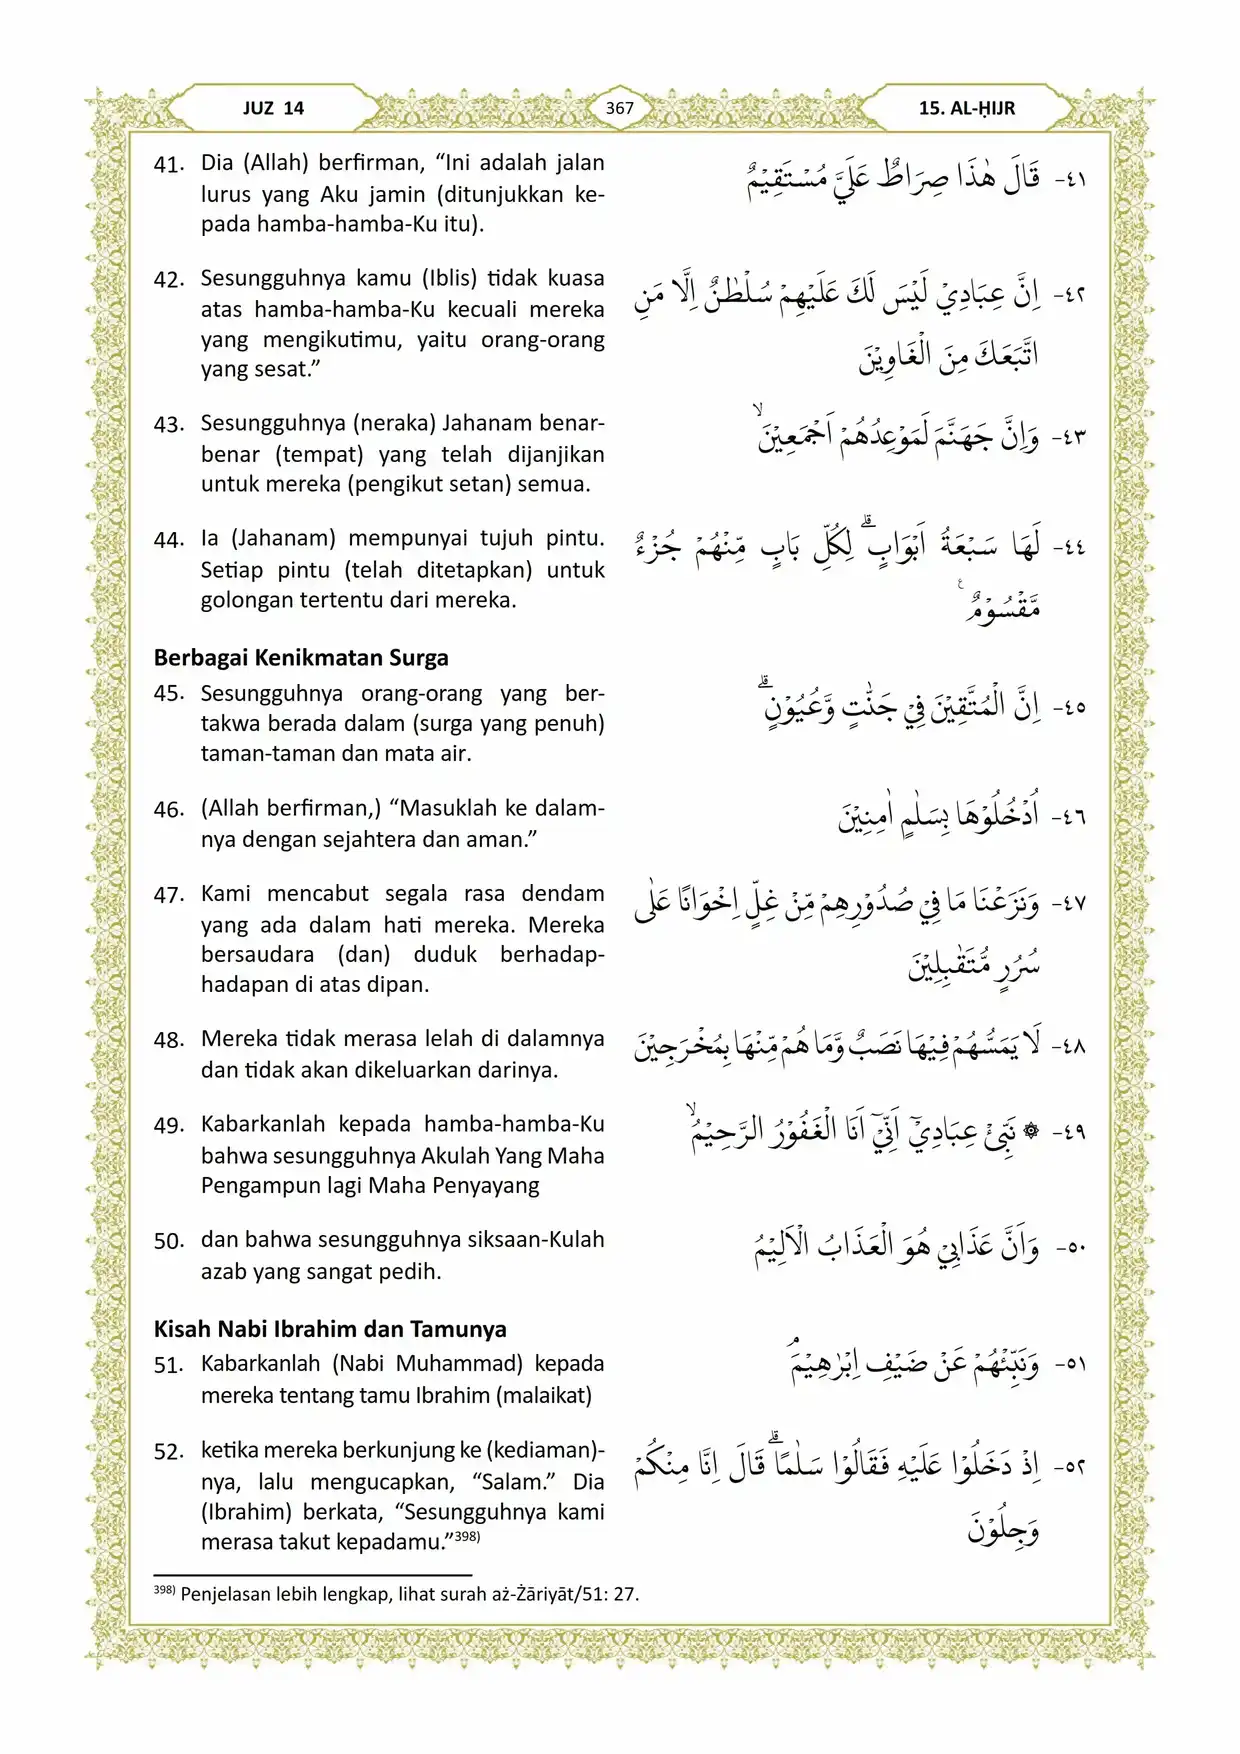 JUZ 14
367
15. AL-ḤIJR
41. Dia (Allah) berfirman, “Ini adalah jalan
lurus yang Aku jamin (ditunjukkan ke-
pada hamba-hamba-Ku itu).
٤١- قَالَ هٰذَا صِرَاطٌ عَلَيَّ مُسْتَقِيْمٌ
42. Sesungguhnya kamu (Iblis) tidak kuasa
atas hamba-hamba-Ku kecuali mereka
yang mengikutimu, yaitu orang-orang
yang sesat.”
٤٢- اِنَّ عِبَادِيْ لَيْسَ لَكَ عَلَيْهِمْ سُلْطٰنٌ اِلَّا مَنِ
اتَّبَعَكَ مِنَ الْغَاوِيْنَ
43. Sesungguhnya (neraka) Jahanam benar-
benar (tempat) yang telah dijanjikan
untuk mereka (pengikut setan) semua.
٤٣- وَاِنَّ جَهَنَّمَ لَمَوْعِدُهُمْ اَجْمَعِيْنَۙ
44. Ia (Jahanam) mempunyai tujuh pintu.
Setiap pintu (telah ditetapkan) untuk
golongan tertentu dari mereka.
٤٤- لَهَا سَبْعَةُ اَبْوَابٍۗ لِكُلِّ بَابٍ مِّنْهُمْ جُزْءٌ
مَّقْسُوْمٌ ࣖ
Berbagai Kenikmatan Surga
45. Sesungguhnya orang-orang yang ber-
takwa berada dalam (surga yang penuh)
taman-taman dan mata air.
٤٥- اِنَّ الْمُتَّقِيْنَ فِيْ جَنّٰتٍ وَّعُيُوْنٍۗ
46. (Allah berfirman,) “Masuklah ke dalam-
nya dengan sejahtera dan aman.”
٤٦- اُدْخُلُوْهَا بِسَلٰمٍ اٰمِنِيْنَ
47. Kami mencabut segala rasa dendam
yang ada dalam hati mereka. Mereka
bersaudara (dan) duduk berhadap-
hadapan di atas dipan.
٤٧- وَنَزَعْنَا مَا فِيْ صُدُوْرِهِمْ مِّنْ غِلٍّ اِخْوَانًا عَلٰى
سُرُرٍ مُّتَقٰبِلِيْنَ
48. Mereka tidak merasa lelah di dalamnya
dan tidak akan dikeluarkan darinya.
٤٨- لَا يَمَسُّهُمْ فِيْهَا نَصَبٌ وَّمَا هُمْ مِّنْهَا بِمُخْرَجِيْنَ
49. Kabarkanlah kepada hamba-hamba-Ku
bahwa sesungguhnya Akulah Yang Maha
Pengampun lagi Maha Penyayang
٤٩- ۞ نَبِّئْ عِبَادِيْٓ اَنِّيْٓ اَنَا الْغَفُوْرُ الرَّحِيْمُۙ
50. dan bahwa sesungguhnya siksaan-Kulah
azab yang sangat pedih.
٥٠- وَاَنَّ عَذَابِيْ هُوَ الْعَذَابُ الْاَلِيْمُ
Kisah Nabi Ibrahim dan Tamunya
51. Kabarkanlah (Nabi Muhammad) kepada
mereka tentang tamu Ibrahim (malaikat)
٥١- وَنَبِّئْهُمْ عَنْ ضَيْفِ اِبْرٰهِيْمَۘ
52. ketika mereka berkunjung ke (kediaman)-
nya, lalu mengucapkan, “Salam.” Dia
(Ibrahim) berkata, “Sesungguhnya kami
merasa takut kepadamu.”398)
٥٢- اِذْ دَخَلُوْا عَلَيْهِ فَقَالُوْا سَلٰمًاۗ قَالَ اِنَّا مِنْكُمْ
وَجِلُوْنَ
398) Penjelasan lebih lengkap, lihat surah aż-Żāriyāt/51: 27.